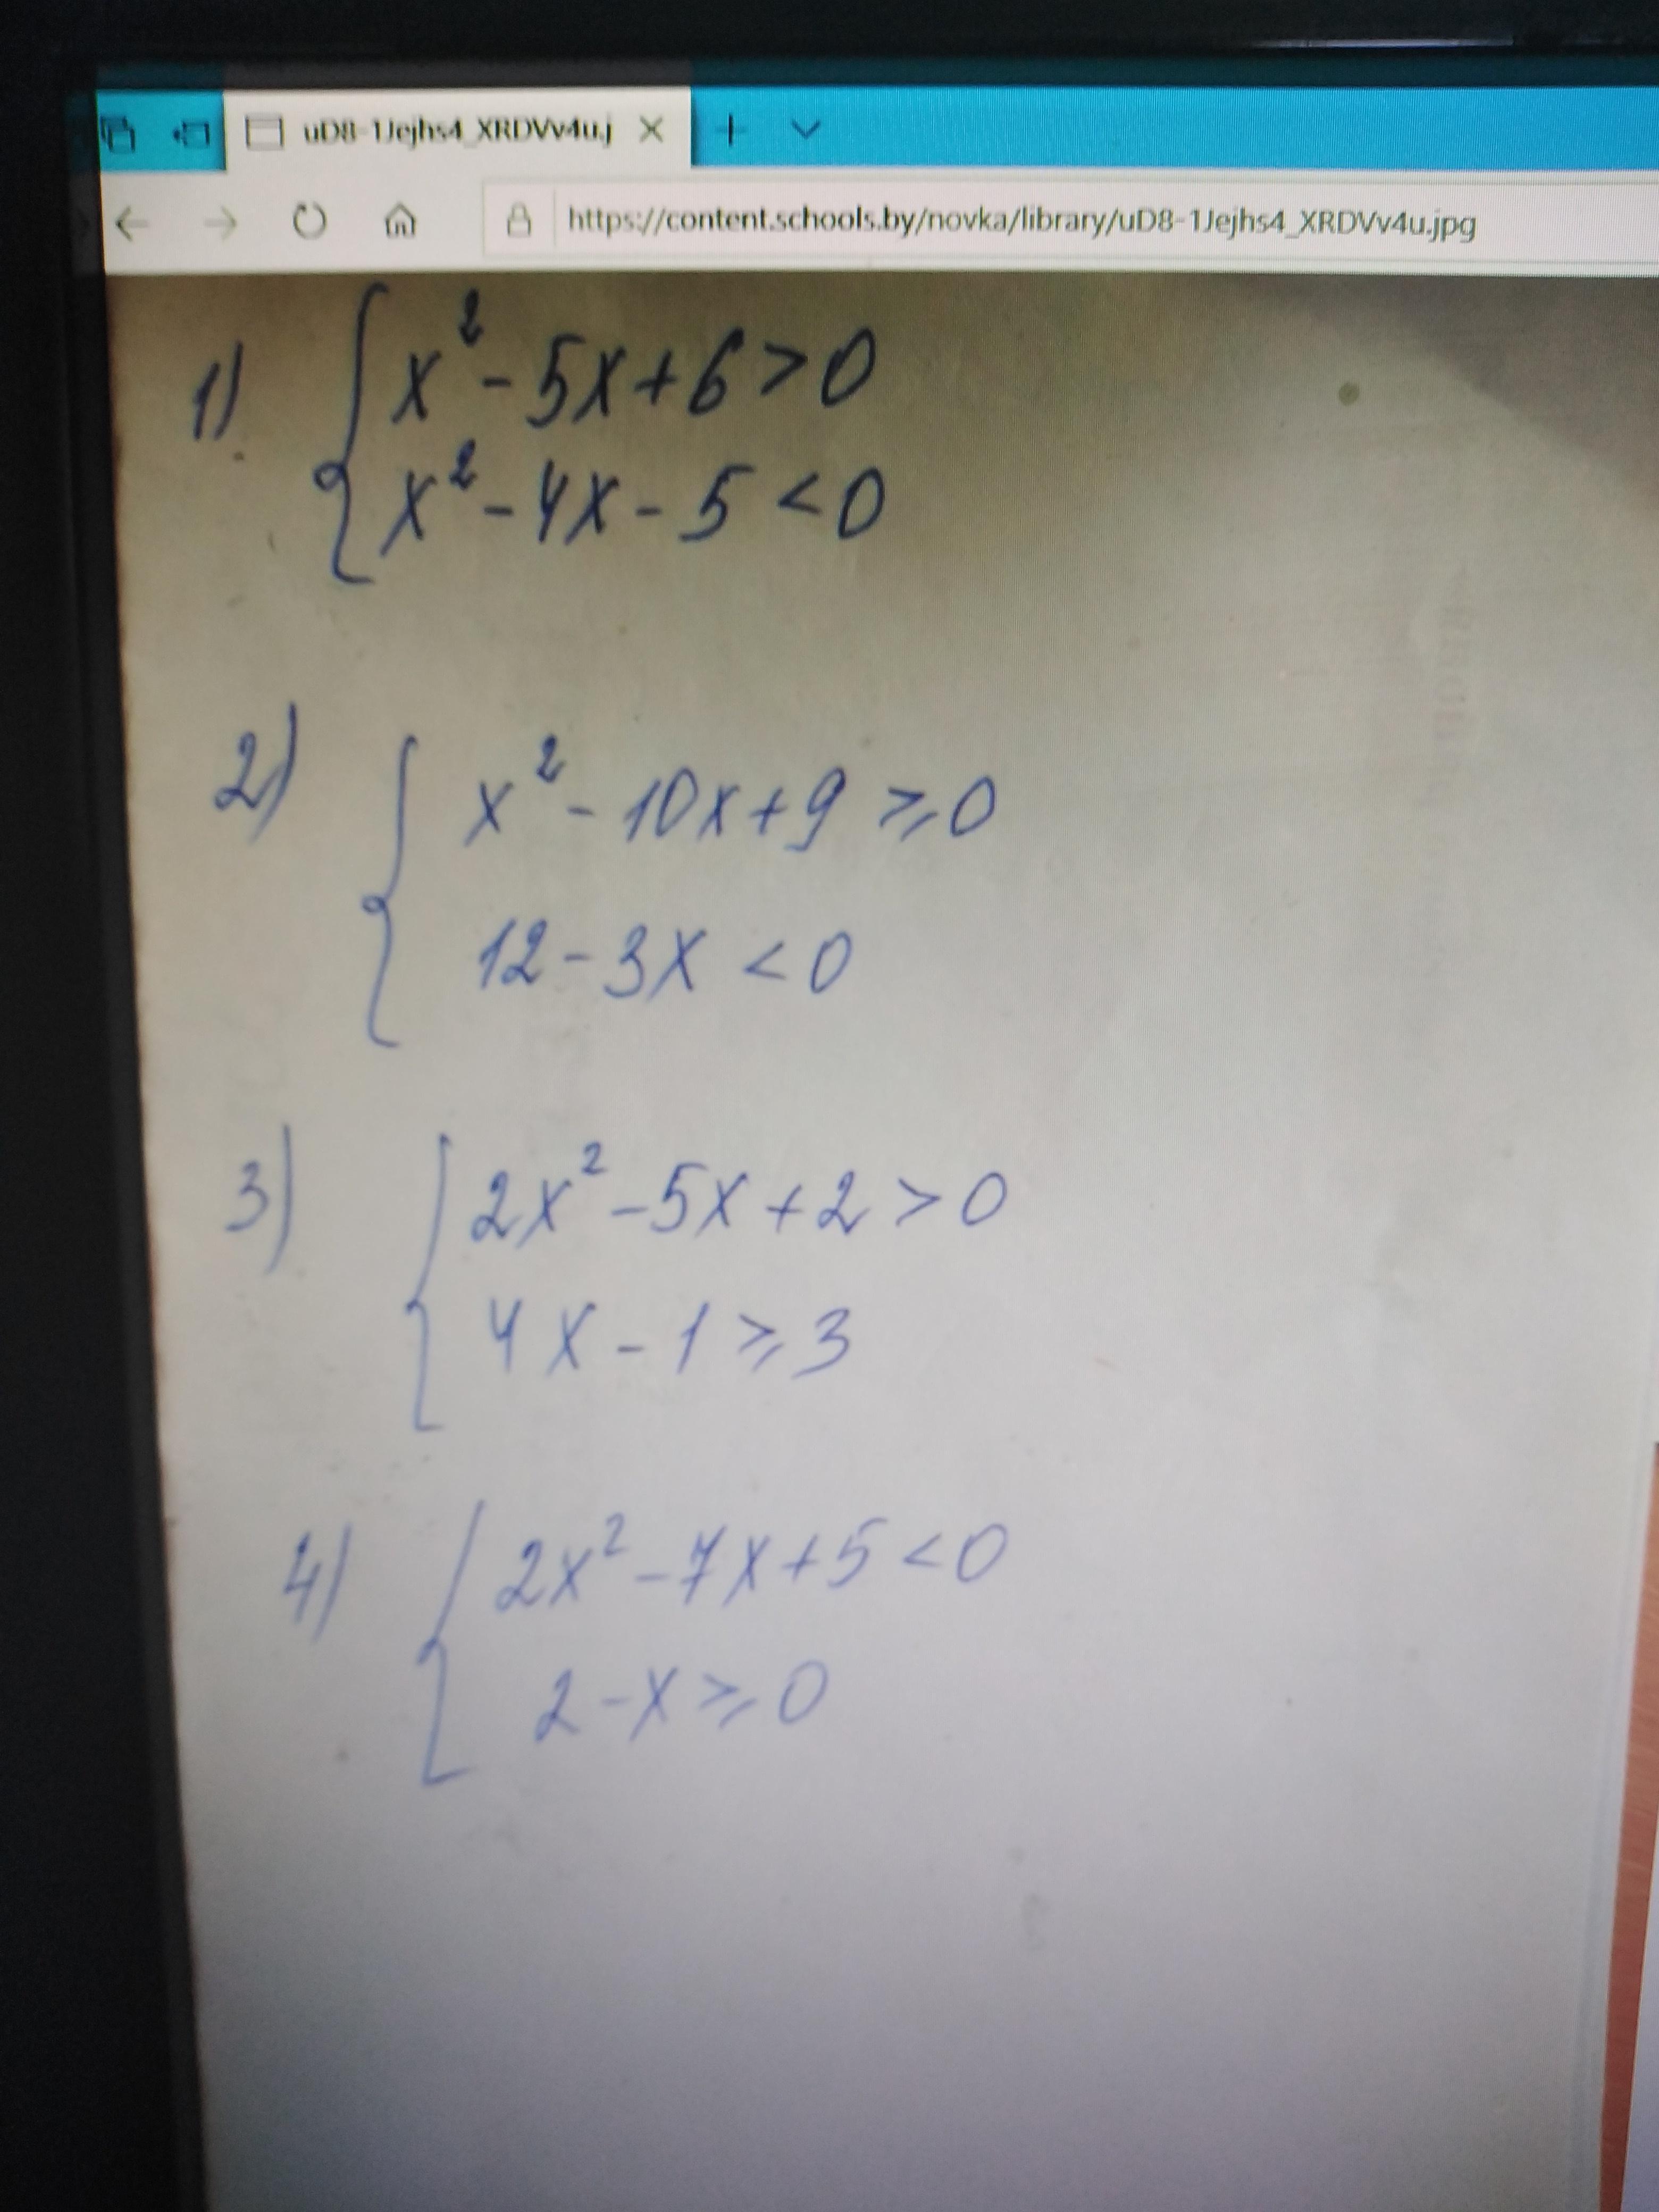 uD8-1Jejhs4_XRDVv4u.j
https://content.schools.by/novka/library/uD8-1Jejhs4_XRDVv4u.jpg
1) { x² - 5x + 6 > 0
x² - 4x - 5 < 0
2) { x² - 10x + 9 ⩾ 0
12 - 3x < 0
3) { 2x² - 5x + 2 > 0
4x - 1 ⩾ 3
4) { 2x² - 7x + 5 < 0
2 - x ⩾ 0